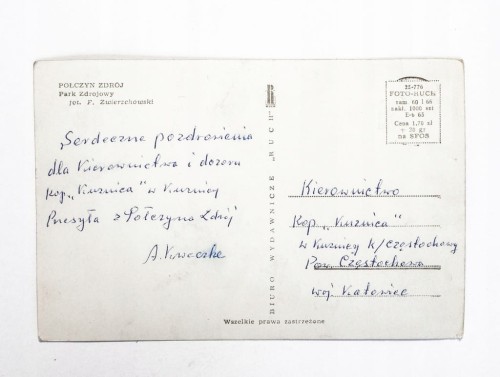 POŁCZYN ZDRÓJ
Park Zdrojowy
fot. F. Zwierzchowski
Serdeczne pozdrosienia
dla Kierownictwa i dozoru
kop. „Kuźnica" w Kuźnicy
Przesyła z Połczyna Zdrój
A.
BIURO WYDAWNICZE „RUCH"
25-776
FOTO-RUCH
zam. 60 I 66
nakł. 1000 szt
E-b 65
Cena 1,70 zł
+ 20 gr
na SFOS
Kierownictwo
Kop „Kuźnica"
w Kuźnicy k/Częstochowy
Pow. Częstochowa
woj. Katowice
Wszelkie prawa zastrzeżone